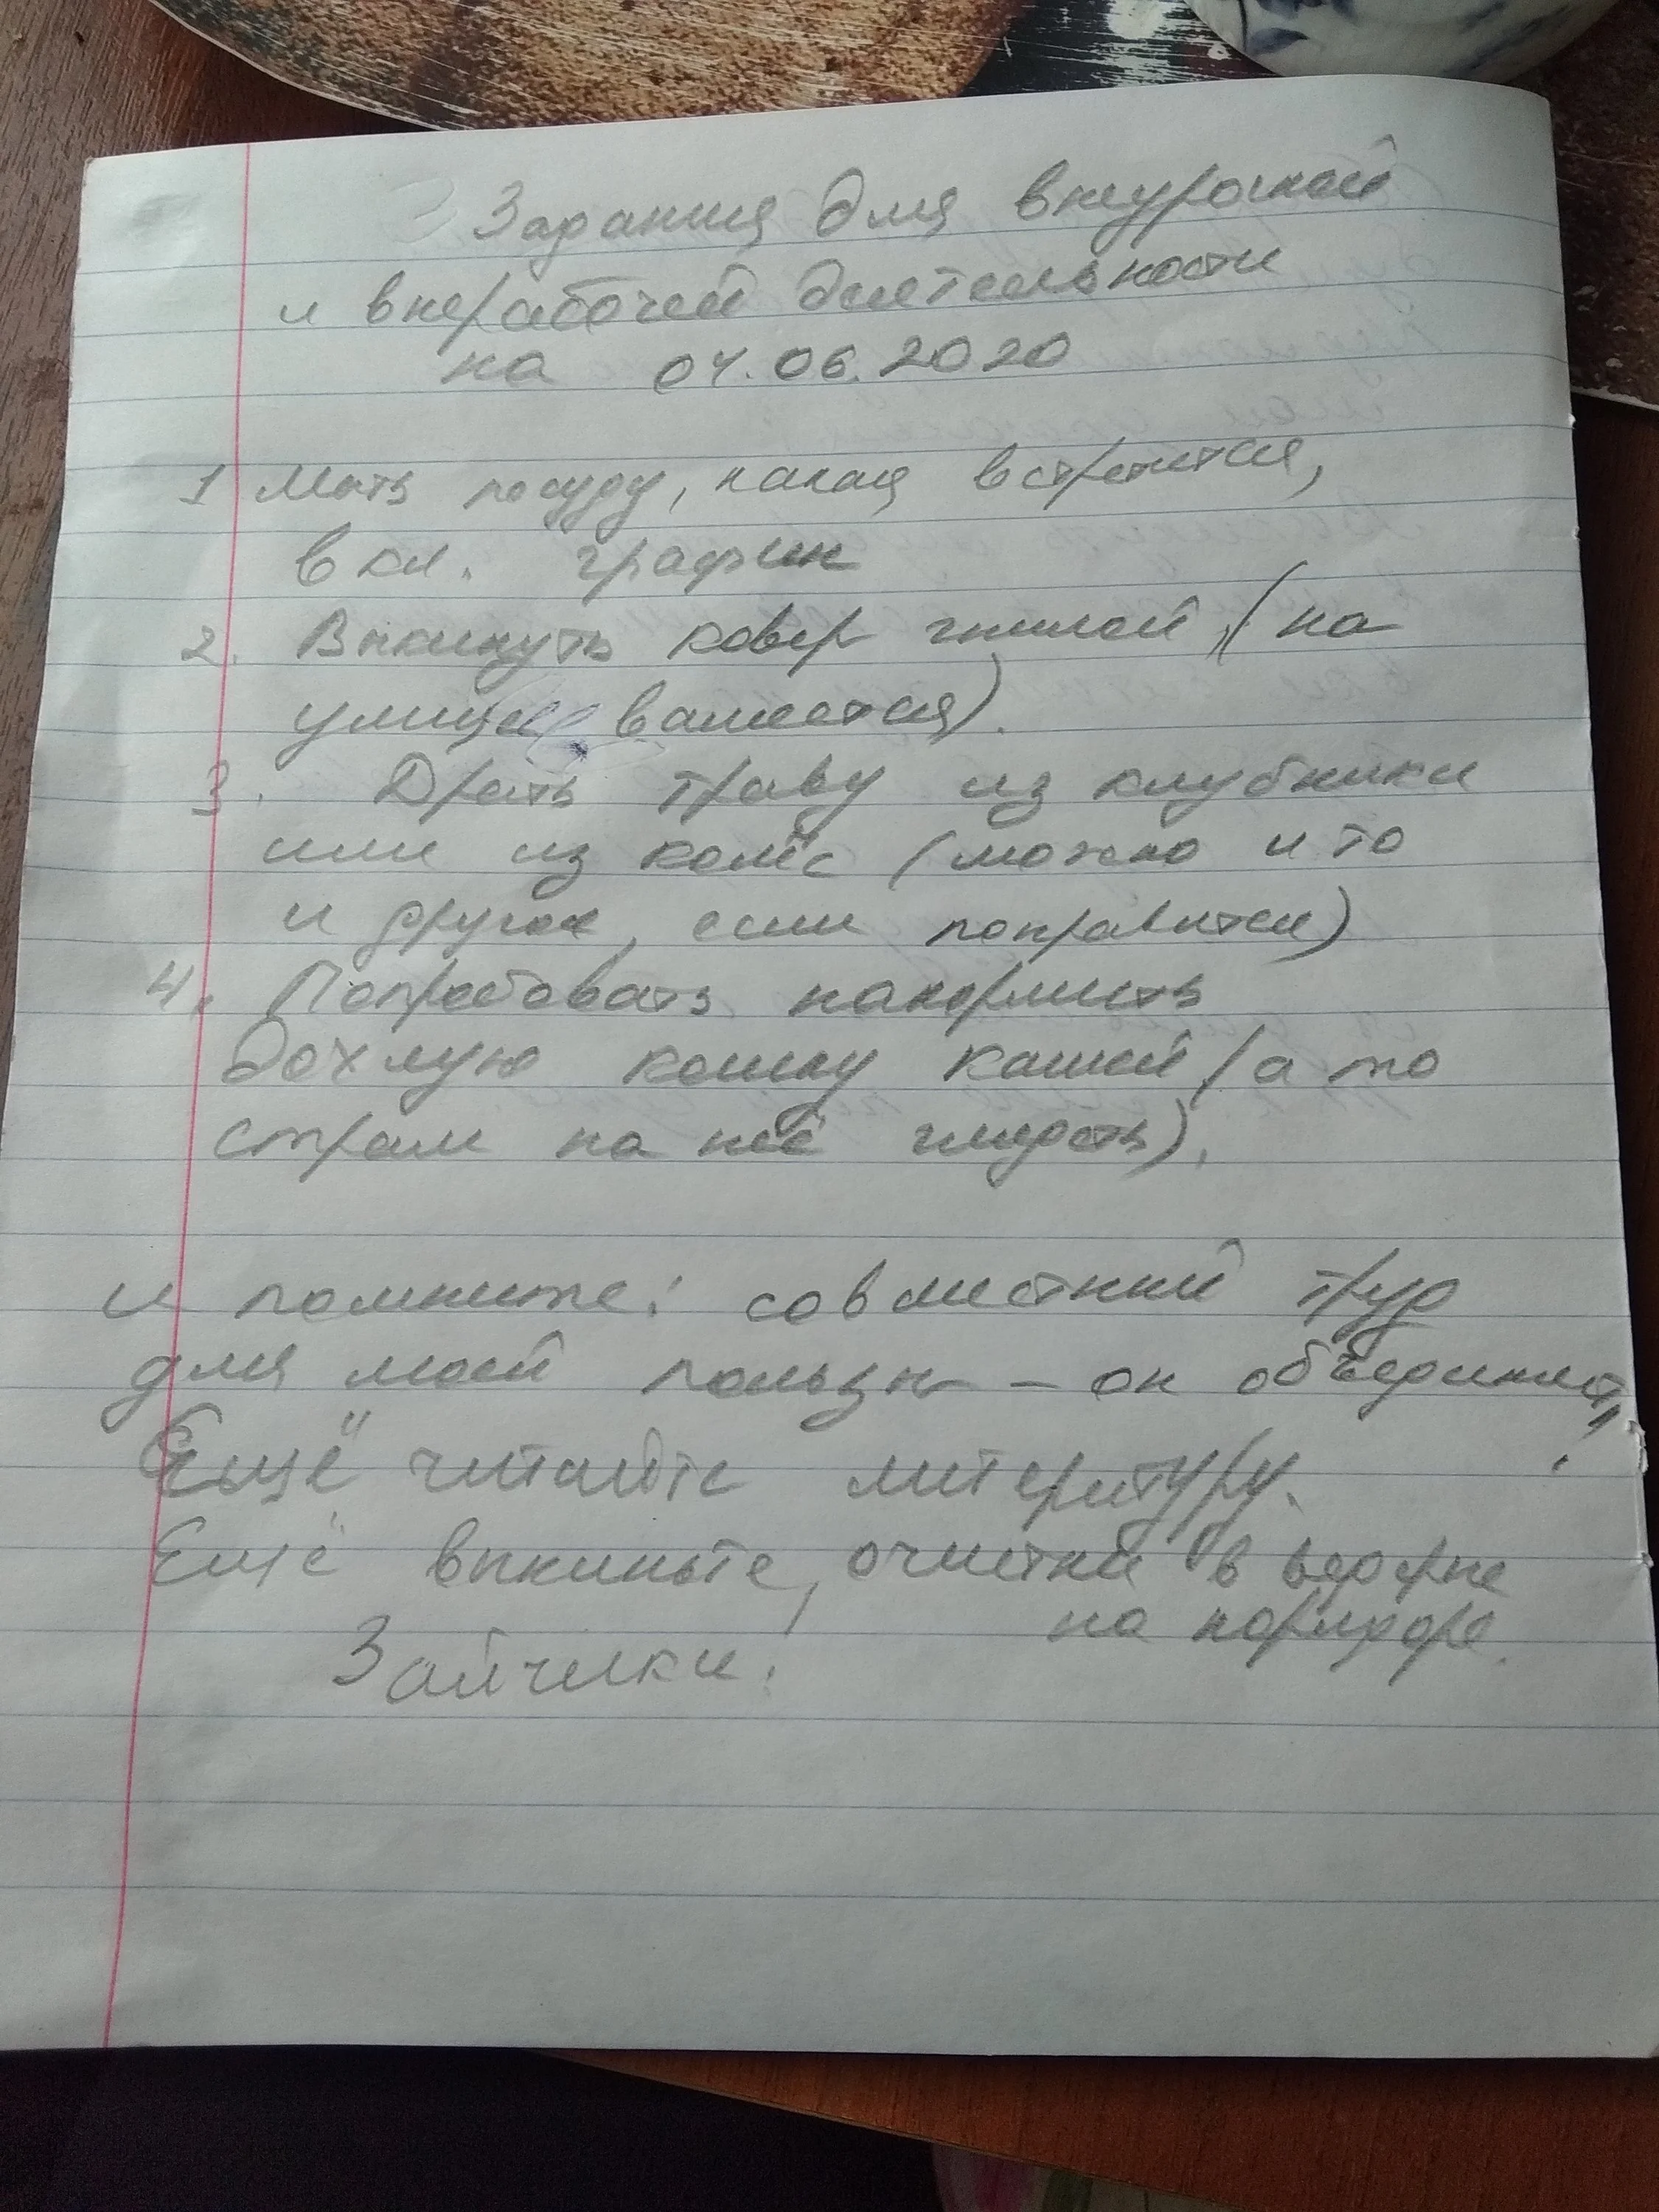 Задания для внеурочной
и внерабочей деятельности
на 04.06.2020
1 Мыть посуду, какая встретится,
вкл. графин
2. Выкинуть ковер гнилой (на
улице валяется).
3. Драть траву из клубники
или из колёс (можно и то
и другое, если понравится)
4. Попробовать накормить
дохлую кошку кашей (а то
страм на неё глядеть).
и помните: совместный труд
для моей пользы – он объединяет,
Ещё читайте литературу.
Ещё выкиньте, очистки в ведёрке
на коридоре.
Зайчики!